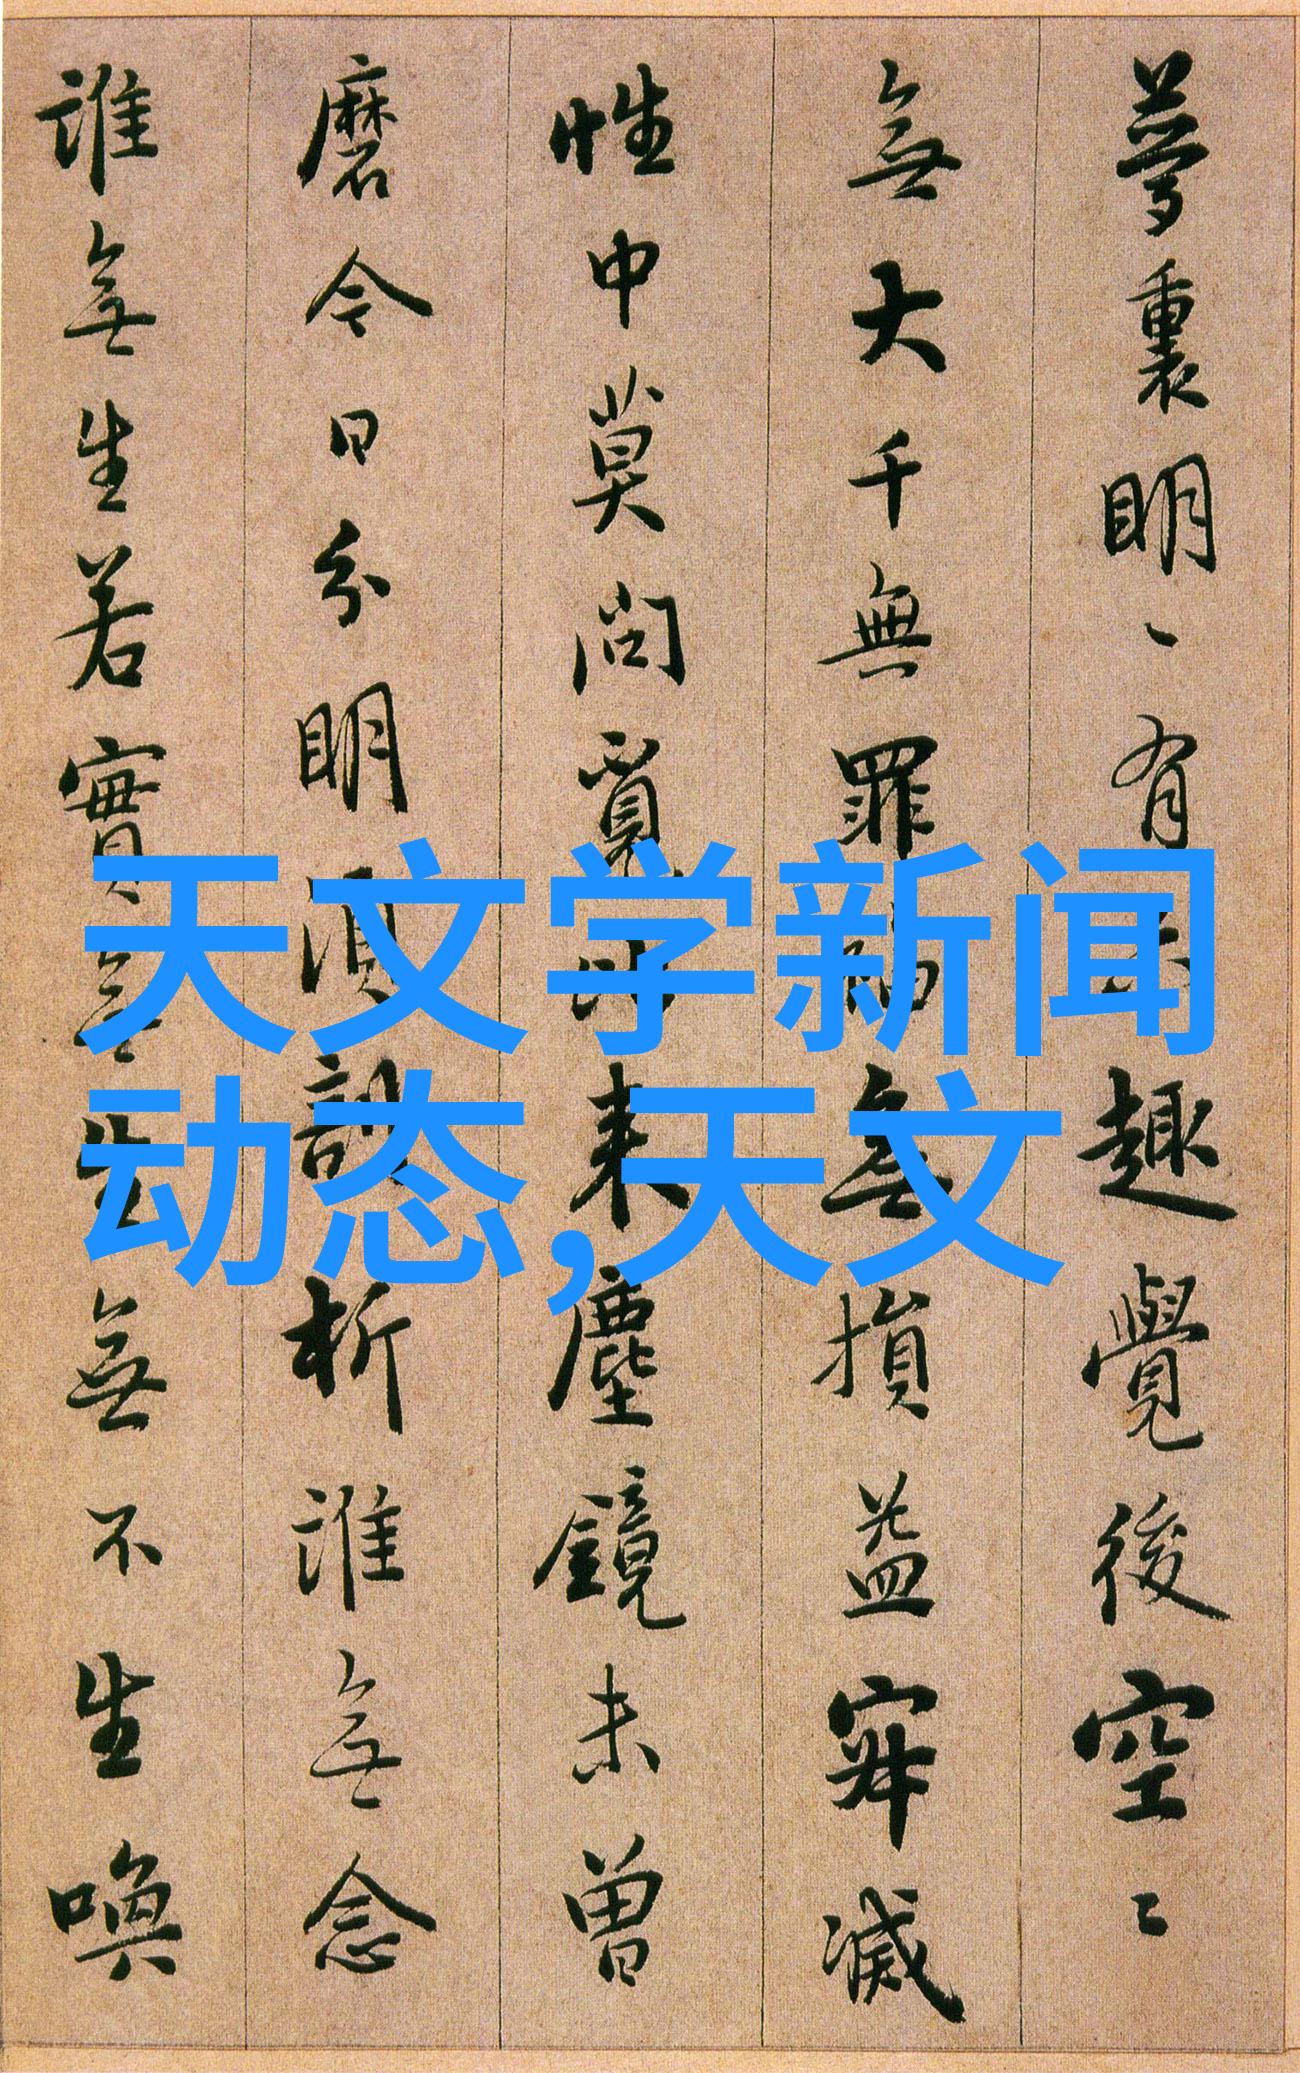 夢裏明丶有趣覺後空〻
無大千無罪福無損益寂滅
性中莫問覓來塵鏡未曾
磨今日分明須剖析誰無念
誰無生若實無生無不生喚
天文学新闻
动态,天文